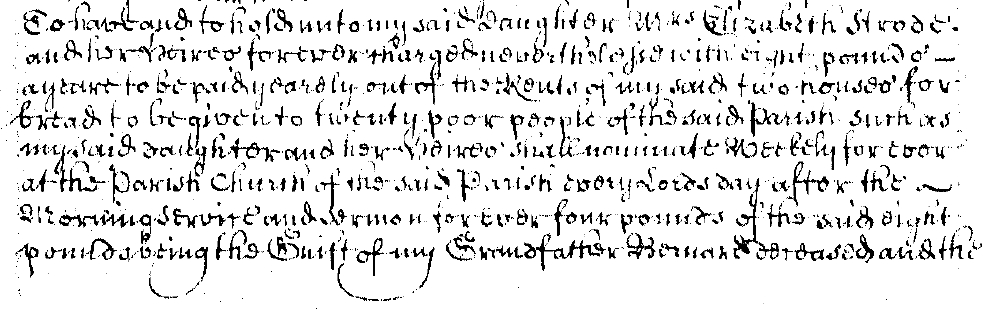 To have and to hold unto my said Daughter Mrs Elizabeth Strode.
and her Heires for ever charged neverthelesse with eight pounds
a yeare to be paid yearely out of the Rents of my said two houses for
bread to be given to twenty poor people of the said Parish such as
my said Daughter and her Heires shall nominate Weekely for ever
at the Parish Church of the said Parish every Lords day after the
Morning Service and Sermon for ever four pounds of the said eight
pounds being the Guift of my Grandfather Bernard deceased and the